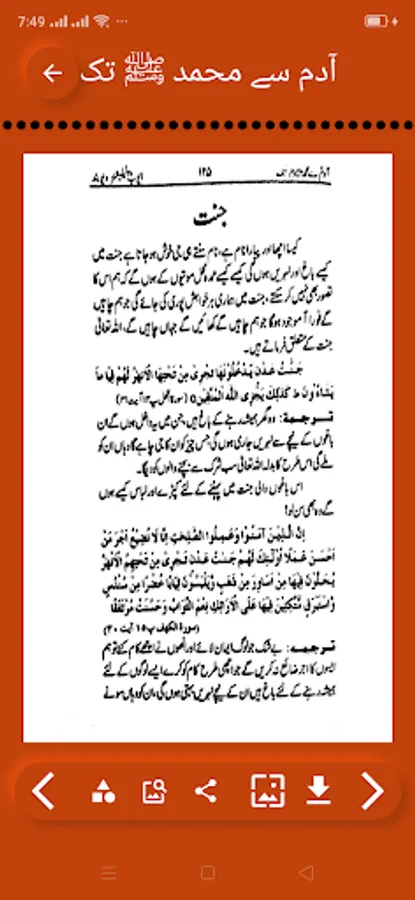 7:49
آدم سے محمد ﷺ تک
۱۲۵
جنت
کیسا اچھا اور پیارا نام ہے، نام سنتے ہی جی خوش ہو جاتا ہے جنت میں
کیسے باغ اور نہریں ہوں گی کیسے کیسے عمدہ محل موتیوں کے ہوں گے کہ ہم اس کا
تصور بھی نہیں کر سکتے، جنت میں ہماری ہر خواہش پوری کی جائے گی جو ہم چاہیں
گے فوراً آ موجود ہوگا جو ہم چاہیں گے کھائیں گے جہاں چاہیں گے، اللہ تعالیٰ
جنت کے متعلق فرماتے ہیں۔
جَنّٰتُ عَدْنٍ يَّدْخُلُوْنَهَا تَجْرِىْ مِنْ تَحْتِهَا الْاَنْهٰرُ لَهُمْ فِيْهَا مَا
يَشَآءُوْنَ ط كَذٰلِكَ يَجْزِى اللّٰهُ الْمُتَّقِيْنَ ٥ (سورۃ النحل پ۱۴ آیت ۳۱)
ترجمہ: وہ گھر ہمیشہ رہنے کے باغ ہیں، جن میں یہ داخل ہوں گے ان
باغوں کے نیچے سے نہریں جاری ہوں گی جس چیز کو ان کا جی چاہے گا وہاں ان کو
ملے گی اس طرح کا بدلہ اللہ تعالیٰ سب شرک سے بچنے والوں کو دیگا۔
اس باغوں والی جنت میں پہننے کے لئے کپڑے اور لباس کیسے ہوں
گے وہ بھی سن لو!
اِنَّ الَّذِيْنَ اٰمَنُوْا وَعَمِلُوا الصّٰلِحٰتِ اِنَّا لَا نُضِيْعُ اَجْرَ مَنْ
اَحْسَنَ عَمَلًا اُولٰٓئِكَ لَهُمْ جَنّٰتُ عَدْنٍ تَجْرِىْ مِنْ تَحْتِهِمُ الْاَنْهٰرُ
يُحَلَّوْنَ فِيْهَا مِنْ اَسَاوِرَ مِنْ ذَهَبٍ وَّيَلْبَسُوْنَ ثِيَابًا خُضْرًا مِّنْ سُنْدُسٍ
وَّاِسْتَبْرَقٍ مُّتَّكِئِيْنَ فِيْهَا عَلَى الْاَرَآئِكِ نِعْمَ الثَّوَابُ وَحَسُنَتْ مُرْتَفَقًا
(سورۃ الکهف پ۱۵ آیت ۳۰)
ترجمہ: بے شک جو لوگ ایمان لائے اور انھوں نے اچھے کام کئے تو ہم
ایسوں کا اجر ضائع نہ کریں گے جو اچھی طرح کام کو کرے ایسے لوگوں کے لئے
ہمیشہ رہنے کے لئے باغ ہیں ان کے نیچے نہریں بہتی ہوں گی، ان کو وہاں سونے